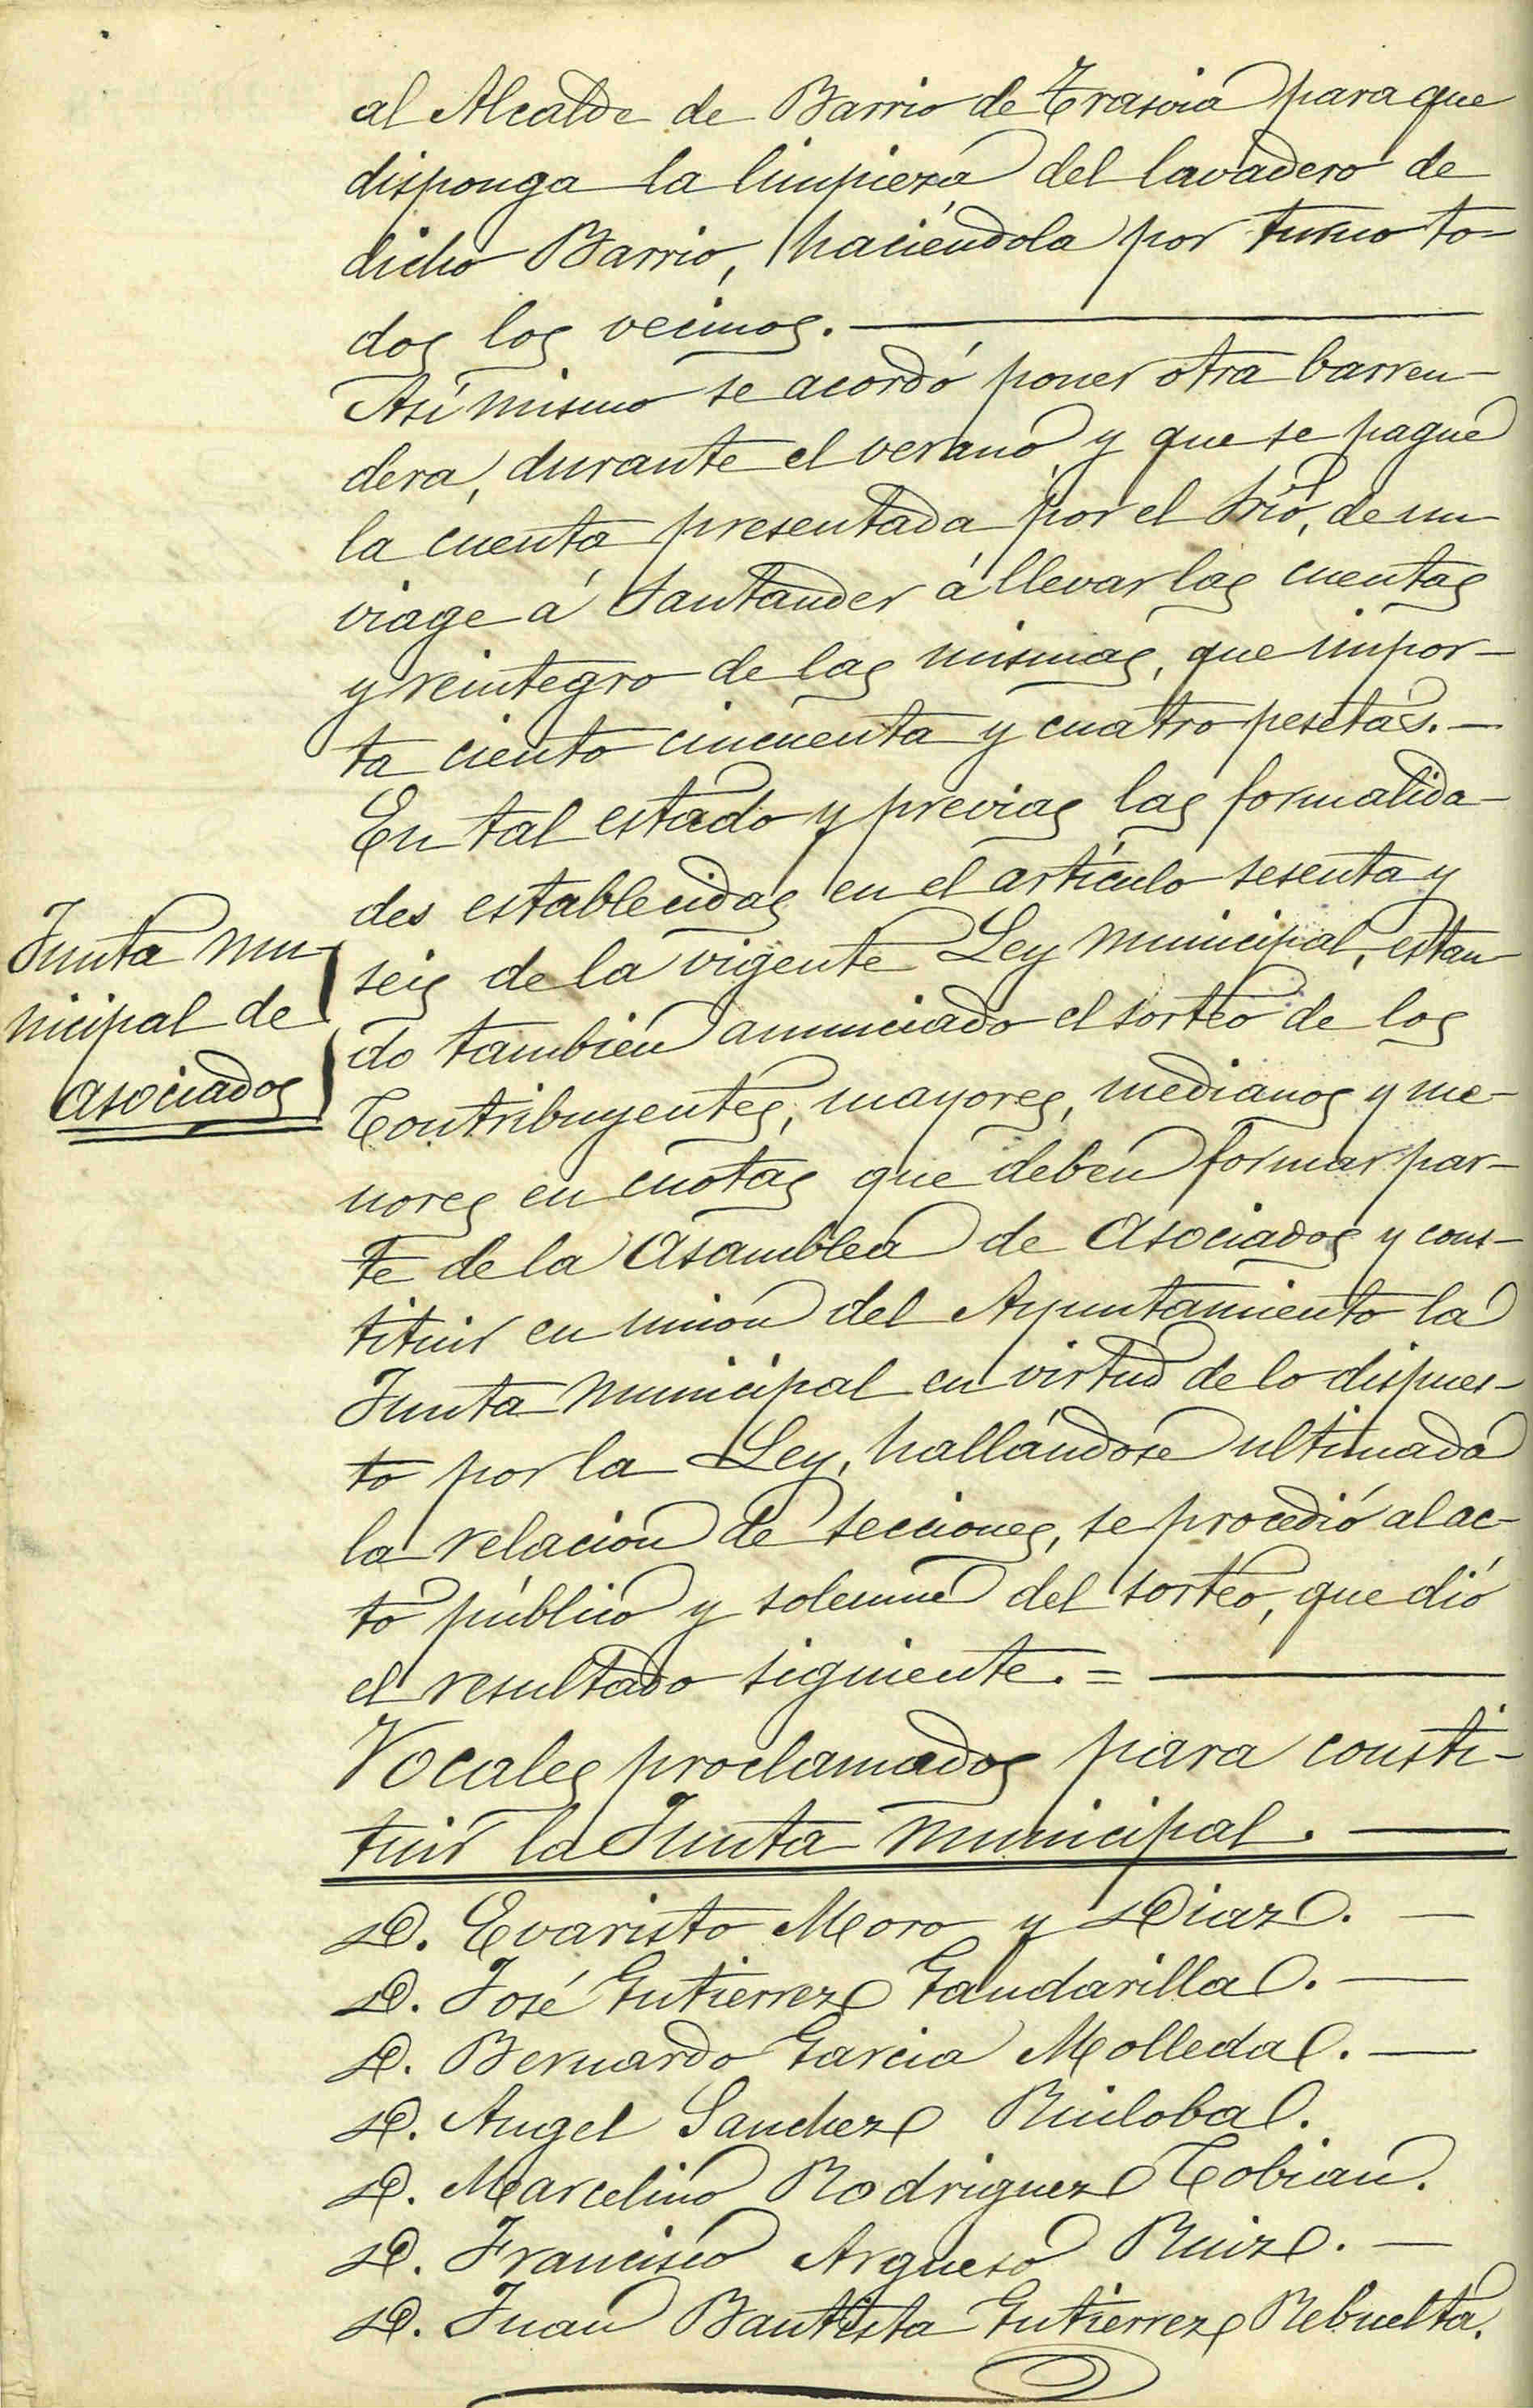 al Alcalde de Barrio de Trasvia para que
disponga la limpieza del lavadero de
dicho Barrio, haciéndola por turno to-
dos los vecinos.
Asi mismo se acordó poner otra barren-
dera, durante el verano y que se pague
la cuenta presentada por el Srio, de un
viage á Santander á llevar las cuentas
y reintegro de las mismas, que impor-
ta ciento cincuenta y cuatro pesetas.-
En tal estado y previas las formalida-
des establecidas en el artículo sesenta y
Junta mu-
nicipal de
asociados
seis de la vigente Ley Municipal, estan-
do tambien anunciado el sorteo de los
Contribuyentes, mayores, medianos y me-
nores en cuotas que deben formar par-
te de la Asamblea de Asociados y cons-
tituir en union del Ayuntamiento la
Junta Municipal en virtud de lo dispues-
to por la Ley, hallándose ultimada
la relacion de secciones, se procedió al ac-
to público y solemne del sorteo, que dió
el resultado siguiente. =
Vocales proclamados para consti-
tuir la Junta Municipal.
D. Evaristo Moro y Diaz. -
D. José Gutierrez Gandarilla. -
D. Bernardo Garcia Molleda. -
D. Angel Sanchez Ruiloba.
D. Marcelino Rodriguez Cobian.
D. Francisco Argueso Ruiz. -
D. Juan Bautista Gutierrez Rebuelta.